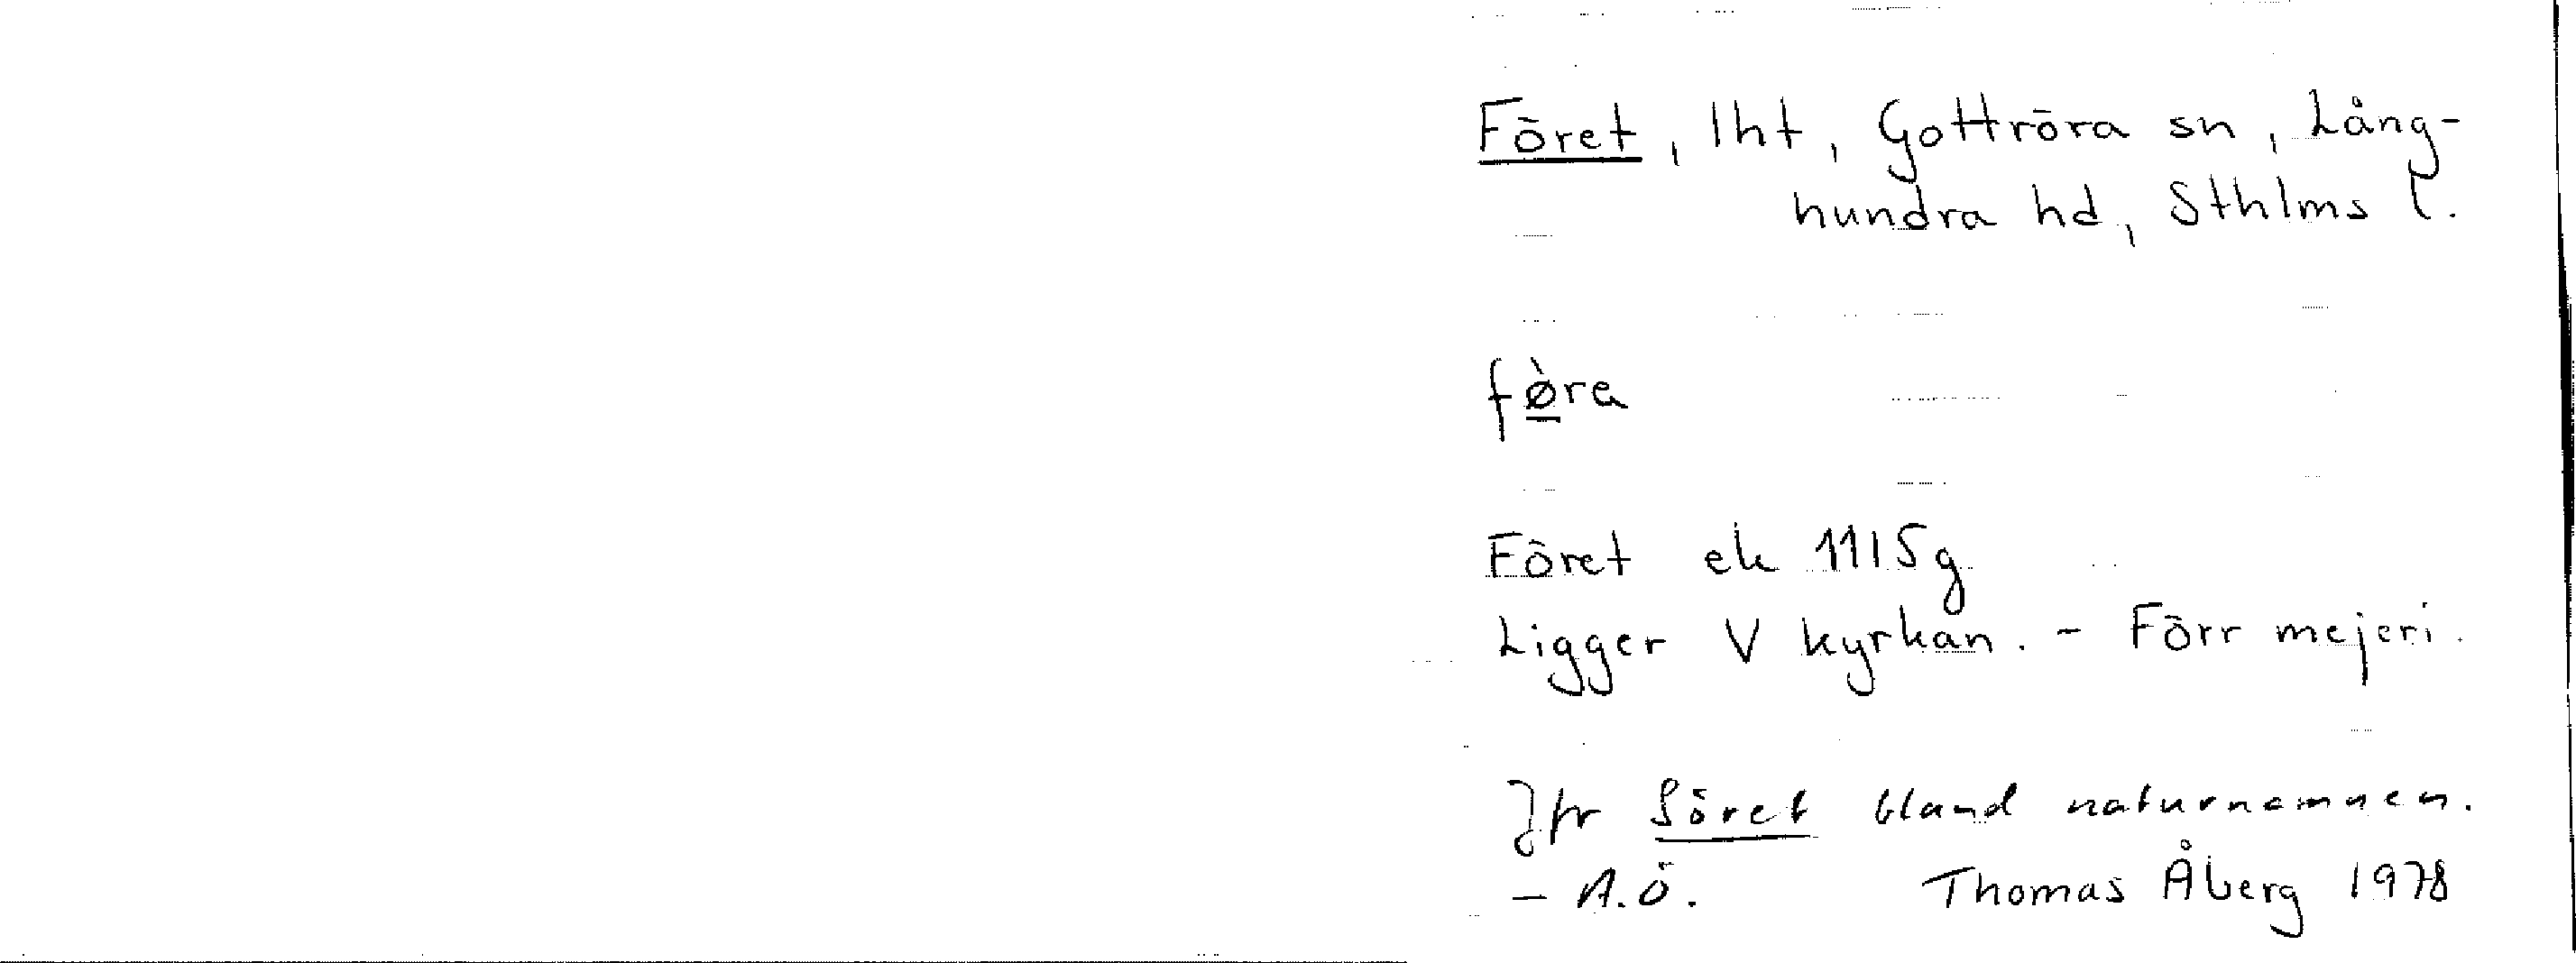 Föret, lht, Gottröra sn, Lång-
hundra hd, Sthlms l.
fø̀ra
Föret ek 11I5g
Ligger V kyrkan. - Förr mejeri.
Jfr Söret bland naturnamnen.
- A.Ö. Thomas Åberg 1978